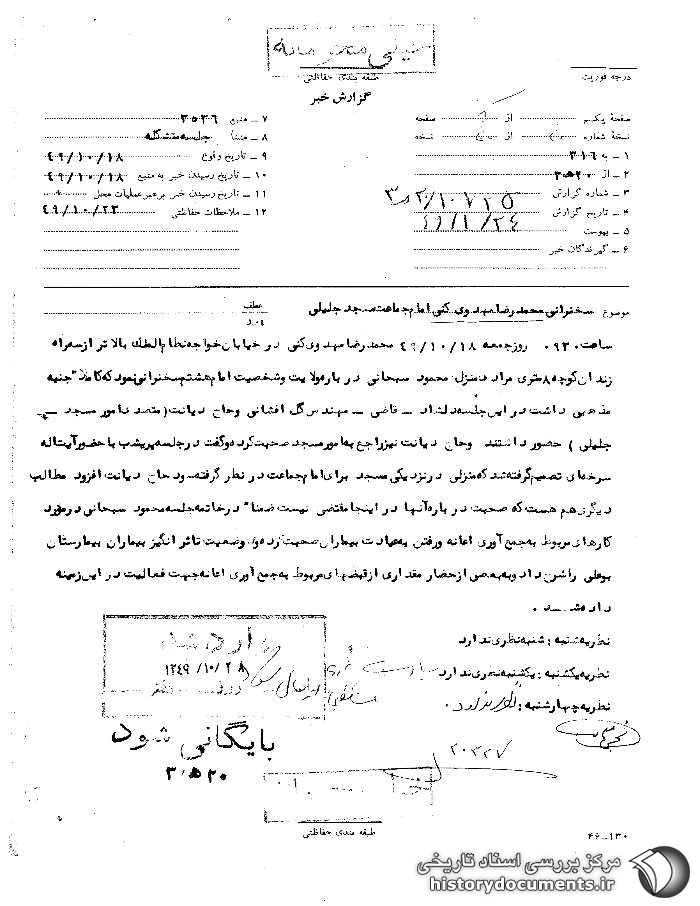 خیلی محرمانه
طبقه بندی حفاظتی
درجه فوریت
گزارش خبر
صفحهٔ یکم از صفحه
نسخهٔ شماره از نسخه
۱ ـ به ۳۱۶
۲ ـ از ۳۵۲۰
۳ ـ شماره گزارش
۴ ـ تاریخ گزارش
۵ ـ پیوست
۶ ـ گیرندگان خبر
۷ ـ منبع ۳۵۳۶
۸ ـ منشأ جلسه متشکله
۹ ـ تاریخ وقوع ۴۹/۱۰/۱۸
۱۰ ـ تاریخ رسیدن خبر به منبع ۴۹/۱۰/۱۸
۱۱ ـ تاریخ رسیدن خبر برهبر عملیات محل
۱۲ ـ ملاحظات حفاظتی ۴۹/۱۰/۲۳
موضوع سخنرانی محمدرضا مهدوی کنی امام جماعت مسجد جلیلی
عطف
ساعت ۰۹۳۰ روز جمعه ۴۹/۱۰/۱۸ محمدرضا مهدوی کنی در خیابان خواجه نظام الملک بالاتر از سه راه
زندان کوچه ۸ متری مراد منزل محمود سبحانی در باره ولایت و شخصیت امام هشتم سخنرانی نمود که کاملا" جنبه
مذهبی داشت در این جلسه دلشاد ـ قاضی ـ مهندس گل افشانی و حاج دیانت (متصد امور مسجد
جلیلی) حضور داشتند و حاج دیانت نیز راجع به امور مسجد صحبت کرده و گفت در جلسه پریشب با حضور آیت اله
سرخه ای تصمیم گرفته شد که منزلی در نزدیکی مسجد برای امام جماعت در نظر گرفته سود حاج دیانت افزود مطالب
دیگری هم هست که صحبت در باره آنها در اینجا مقتضی نیست ضمنا" در خاتمه جلسه محمود سبحانی در مورد
کارهای مربوط به جمع آوری اعانه و رفتن به عیادت بیماران صحبت کرده و وضعیت تاثر انگیز بیماران بیمارستان
بوعلی را شرح داد و به بعضی از حضار مقداری از قبضهای مربوط به جمع آوری اعانه جهت فعالیت در این زمینه
داده شد.
نظریه شنبه : شنبه نظری ندارد
نظریه یکشنبه : یکشنبه نظری ندارد
نظریه چهارشنبه : نظری ندارد.
وارد شد
۱۳۴۹/۱۰/۲۸
بایگانی شود
۳۵۲۰
۲۰۳۲۷
طبقه بندی حفاظتی
۴۶ـ۱۳۰
مرکز بررسی اسناد تاریخی
historydocuments.ir